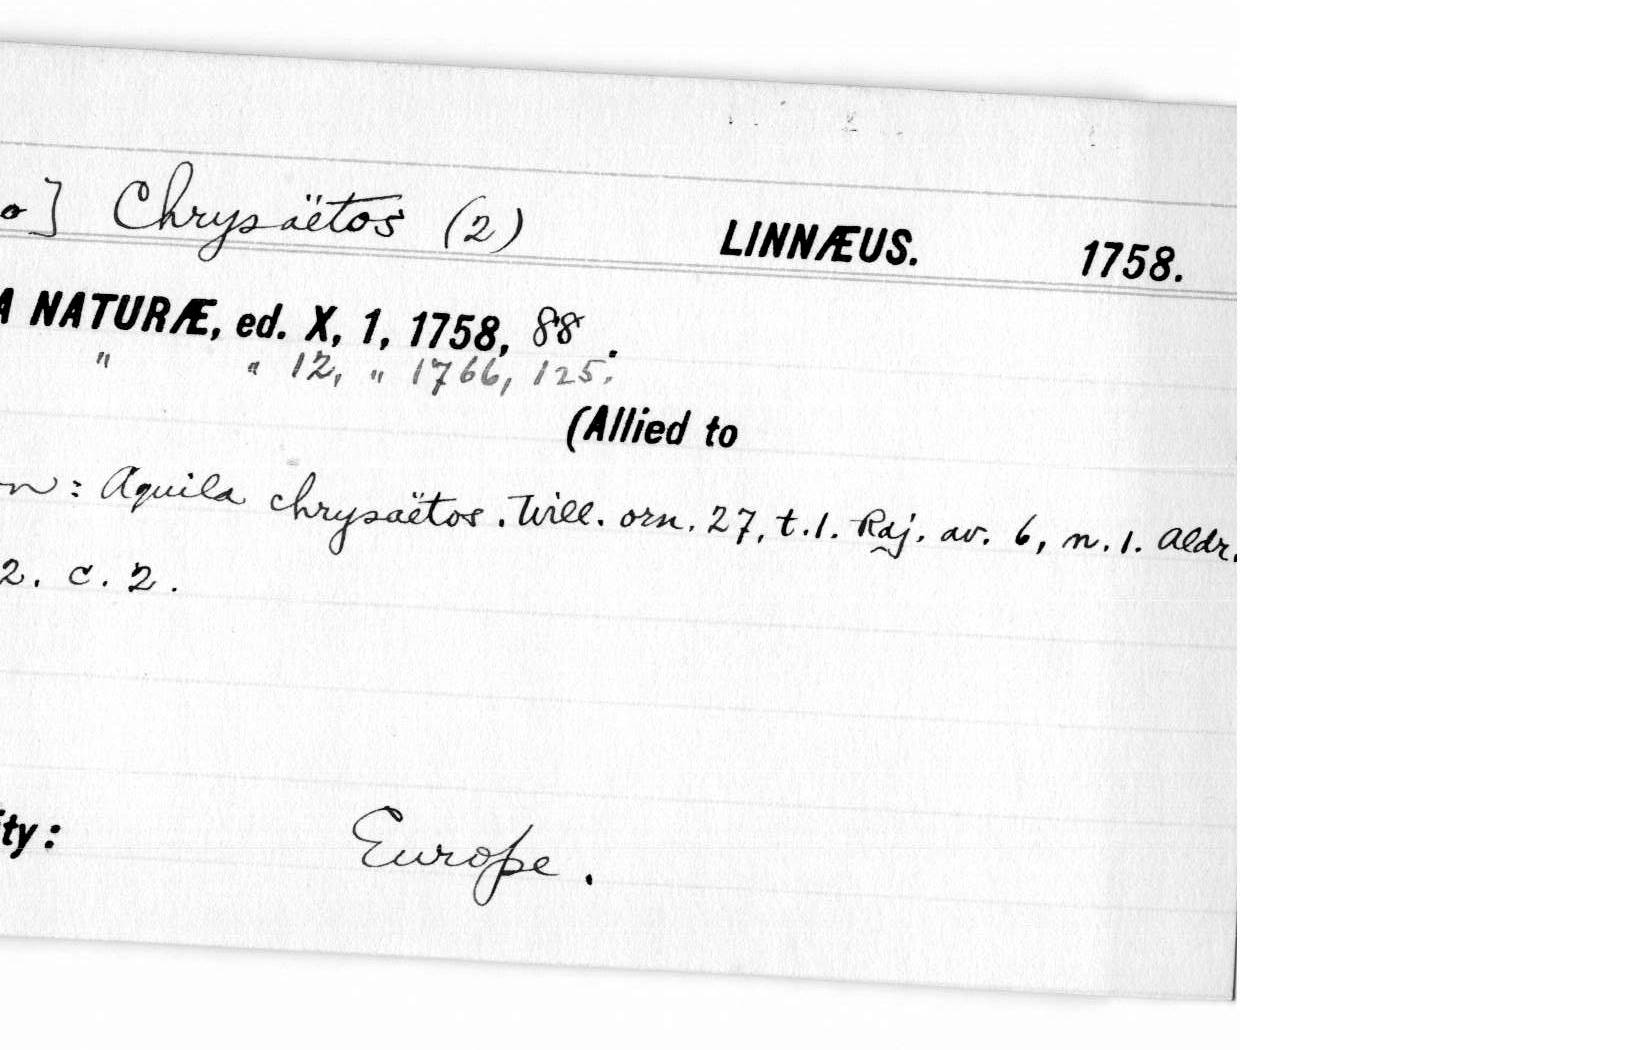 o] Chrysaëtos (2) LINNÆUS. 1758.
A NATURÆ, ed. X, 1, 1758, 88.
" " 12, " 1766, 125.
(Allied to
n: Aquila chrysaëtos. Will. orn. 27, t.1. Raj. av. 6, n. 1. Aldr.
2. c. 2.
ity: Europe.